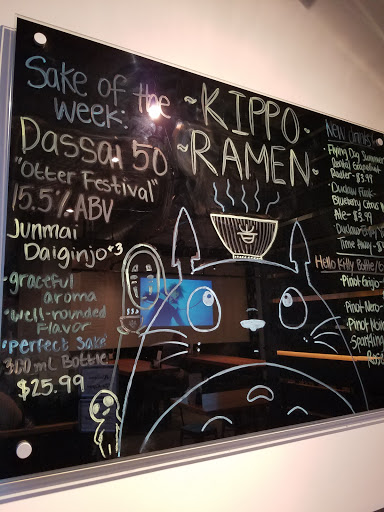 Sake of the
week:
Dassai 50
"Otter Festival"
15.5% ABV
Junmai
Daiginjo +3
-graceful
aroma
-well-rounded
Flavor
-"Perfect Sake"
300 mL Bottle
$25.99
~KIPPO~
~RAMEN~
New drinks
-Flying Dog Summer
Rental Grapefruit
Radler- $3.99
-Duclaw
Blueberry
Ale- $3.99
-Duclaw
Time Away- $
Hello Kitty Bottle
-Pinot Grigio
-Pinot Nero-
-Pinot
Sparkling
Rose